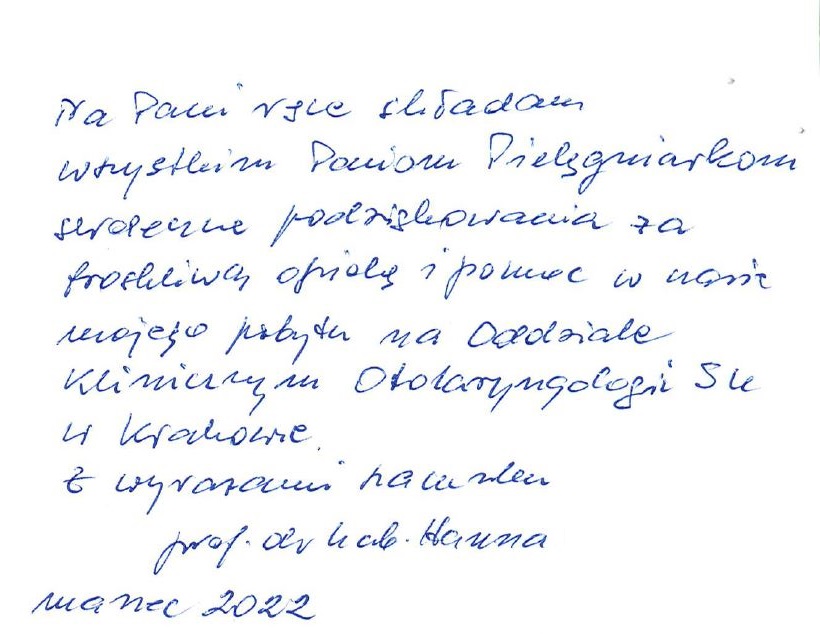 Na Pani ręce składam
wszystkim Paniom Pielęgniarkom
serdeczne podziękowania za
troskliwą opiekę i pomoc w czasie
mojego pobytu na Oddziale
Klinicznym Otolaryngologii SU
w Krakowie.
Z wyrazami szacunku
prof. dr hab. Hanna
marzec 2022